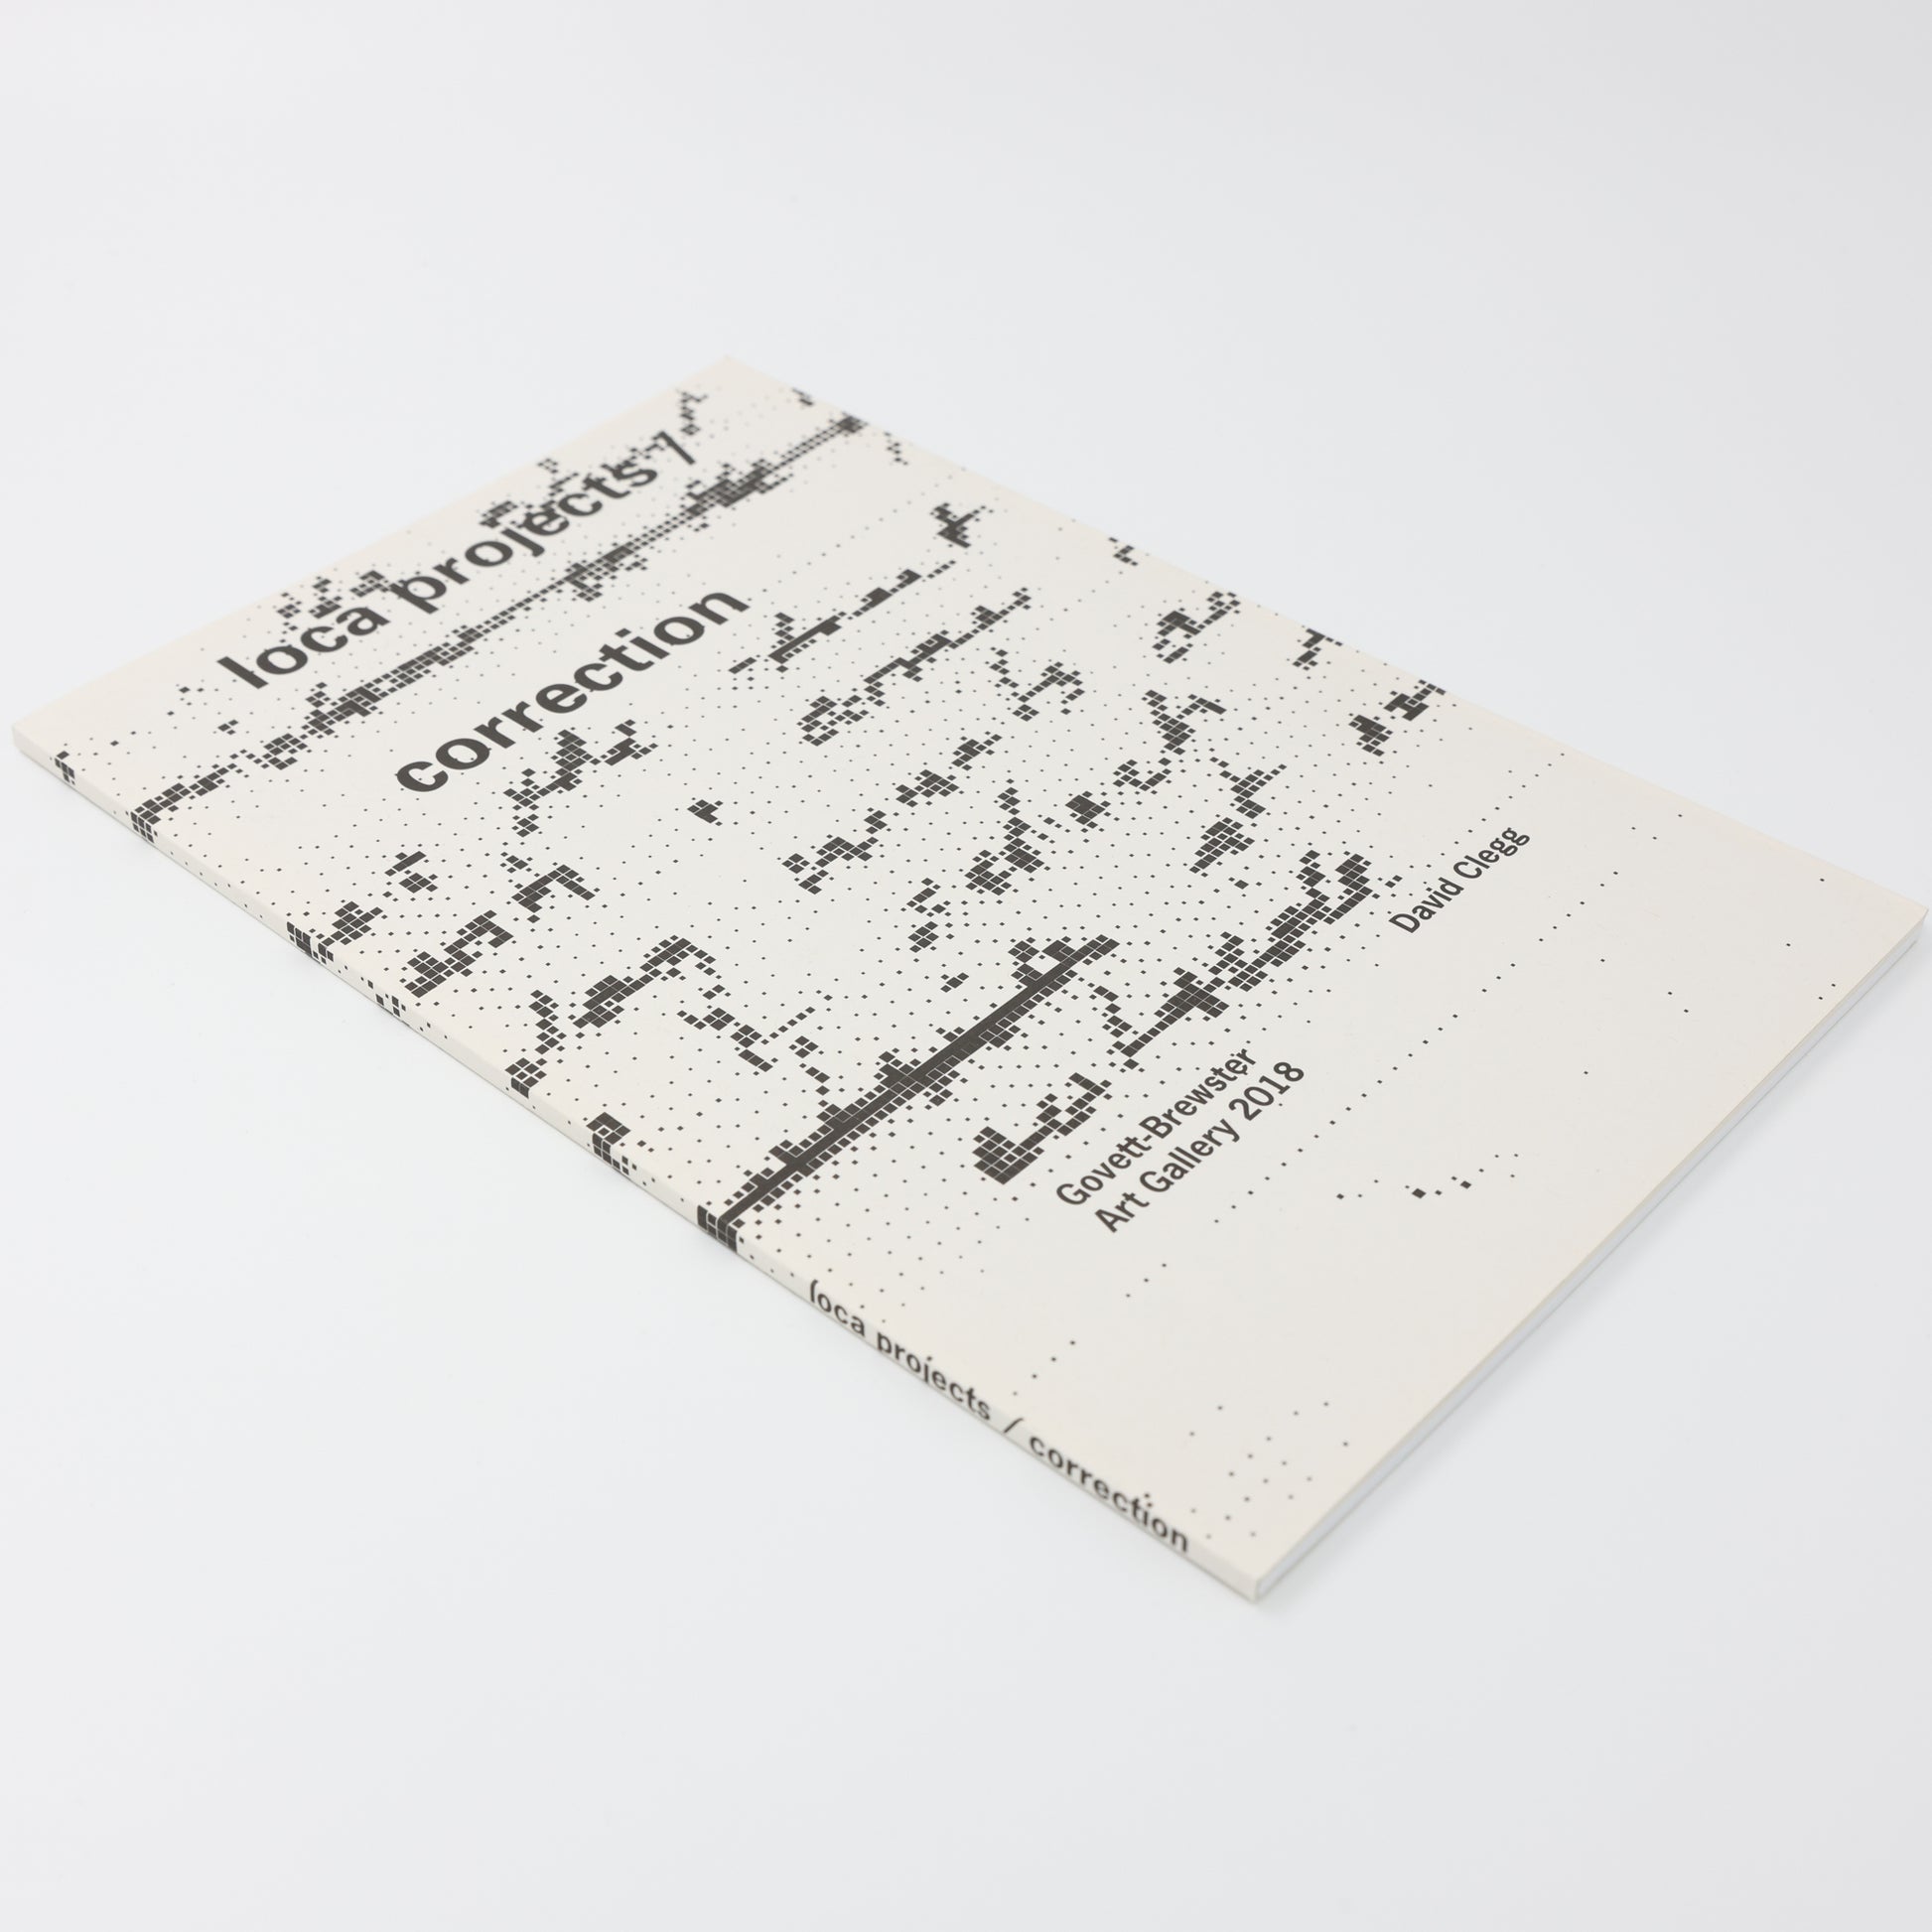 loca projects /
correction
David Clegg
Govett-Brewster
Art Gallery 2018
loca projects / correction